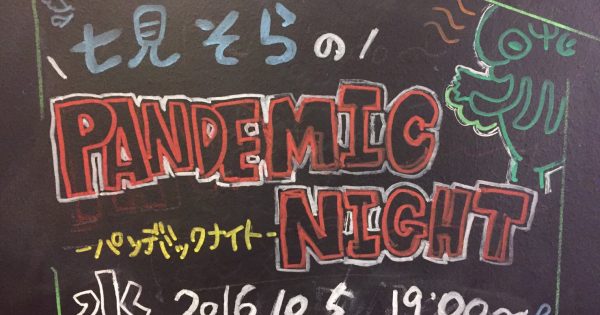 \七見そらの/
PANDEMIC
NIGHT
-パンデミックナイト-
水 2016.10.5 19:00